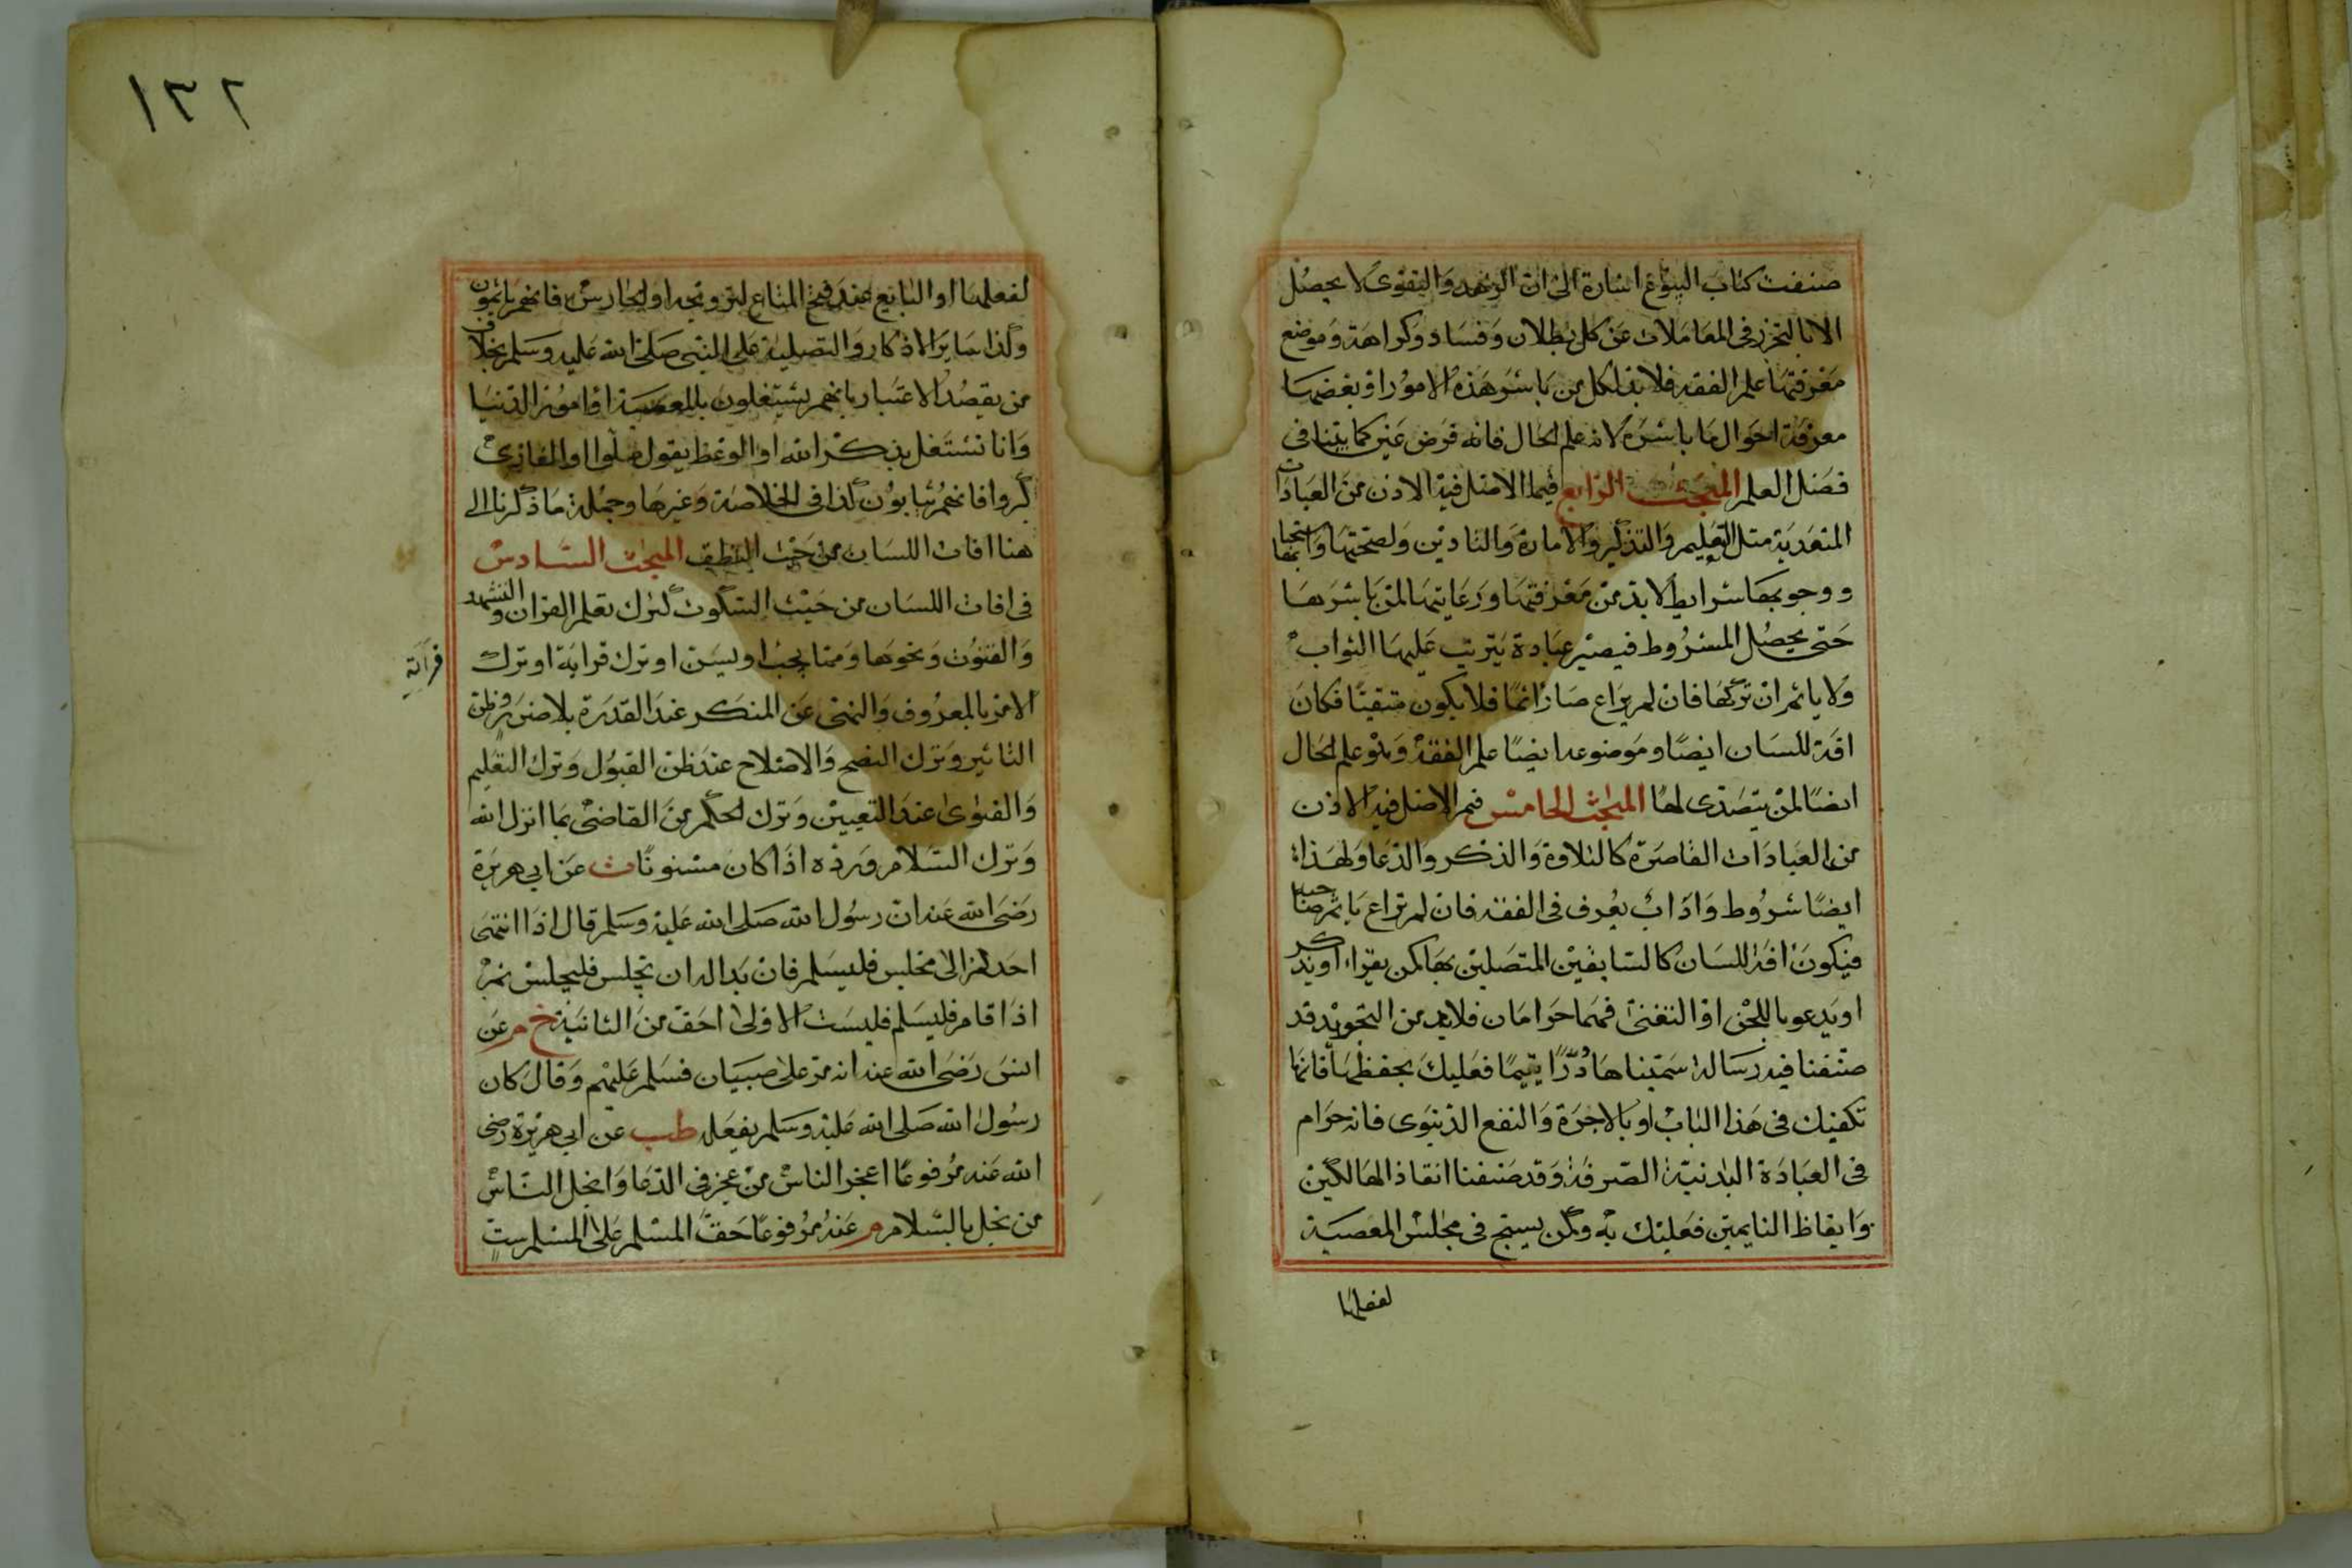 صنفت كتاب البيوع اشارة الى ان الزهد والتقوى لا يحصل
الا بالتحرز فى المعاملات عن كل بطلان وفساد وكراهة وموضع
معرفتها علم الفقه فلا بد لكل من باشر هذه الامور او بعضها
معرفة احوال ما باشره لانه علم الحال فانه فرض عين كما بينا فى
فضل العلم المبحث الرابع فيما الاصل فيه الاذن من العبادات
المتعدية مثل التعليم والتذكير والامامة والتاذين ولصحتها واستحبابها
ووجوبها شرايط لا بد من معرفتها ورعايتها لمن باشرها
حتى يحصل المشروط فيصير عبادة يترتب عليها الثواب
ولا ياثم ان تركها فان لم يراع صار اثما فلا يكون متقيا فكان
افة للسان ايضا وموضوعه ايضا علم الفقه وهو علم الحال
ايضا لمن يتصدى لها المبحث الخامس فيم الاصل فيه الاذن
من العبادات القاصرة كالتلاوة والذكر والدعا ولهذا
ايضا شروط واداب يعرف فى الفقه فان لم تراع ياثم صاحبها
فيكون افة للسان كالسابقين المتصلين بها كمن يقراء او يذكر
او يدعو باللحن او التغنى فهما حرامان فلا بد من التجويد قد
صنفنا فيه رسالة سميناها درا يتيما فعليك بحفظها فانها
تكفيك فى هذا الباب او بالاجرة والنفع الدنيوى فانه حرام
فى العبادة البدنية الصرفة وقد صنفنا انقاذ الهالكين
وايقاظ النايمين فعليك به وكمن يسبح فى مجلس المعصية
لفعلها
١٣٢
لفعلها او البايع عند فتح المتاع لترويجه او الحارس فانهم ياثمون
وكذا ساير الاذكار والتصلية على النبى صلى الله عليه وسلم بخلاف
من يقصد الاعتبار بانهم يشتغلون بالمعصية او امور الدنيا
وانا نشتغل بذكر الله او الوعظ يقول صلوا او الغازى
كبروا فانهم يثابون كذا فى الخلاصة وغيرها وجملة ما ذكرنا الى
هنا افات اللسان من حيث النطق المبحث السادس
فى افات اللسان من حيث السكوت كترك تعلم القران والتشهد
والقنوت ونحوها ومما يجب او يسن او ترك قراية او ترك
قرآته
الامر بالمعروف والنهى عن المنكر عند القدرة بلا ضرر وظن
التاثير وترك النصح والاصلاح عند ظن القبول وترك التعليم
والفتوى عند التعيين وترك الحكم من القاضى بما انزل الله
وترك السلام ورده اذا كان مسنونا ت عن ابى هريرة
رضى الله عنه ان رسول الله صلى الله عليه وسلم قال اذا انتهى
احدكم الى مجلس فليسلم فان بدا له ان يجلس فليجلس ثم
اذا قام فليسلم فليست الاولى احق من الثانية خ م عن
انس رضى الله عنه انه مر على صبيان فسلم عليهم وقال كان
رسول الله صلى الله عليه وسلم يفعله طب عن ابى هريرة رضى
الله عنه مرفوعا اعجز الناس من عجز فى الدعا وابخل الناس
من بخل بالسلام م عنه مرفوعا حق المسلم على المسلم ست